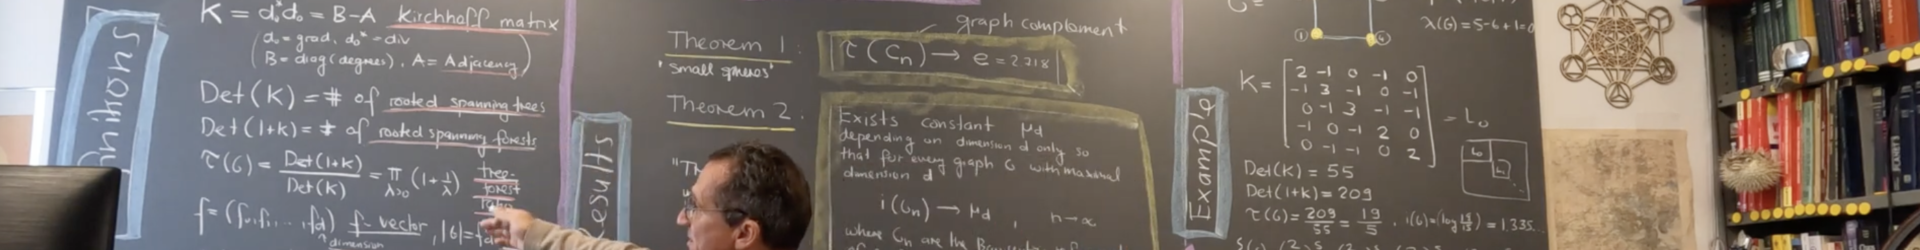 K = d₀*d₀ = B-A Kirchhoff matrix
(d₀ = grad, d₀* = div
B = diag(degrees), A = Adjacency)
Det(K) = # of rooted spanning trees
Det(1+K) = # of rooted spanning forests
τ(G) = Det(1+K) / Det(K) = π λ>0 (1 + 1/λ) tree-forest
f = (f₀, f₁, ... , fd) f-vector, |G| =
dimension
Results
graph complement
Theorem 1:
τ(Cn) → e = 2.718
Theorem 2.
Exists constant μd
depending on dimension d only so
that for every graph G with maximal
dimension d
i(Gn) → μd , n→∞
where Gn are the
Examples
λ(G) = 5-6+1=0
K = [2 -1 0 -1 0
-1 3 -1 0 -1
0 -1 3 -1 -1
-1 0 -1 2 0
0 -1 -1 0 2] = L₀
L₀
Det(K) = 55
Det(1+K) = 209
τ(G) = 209/55 = 19/5 .
= 1.335...